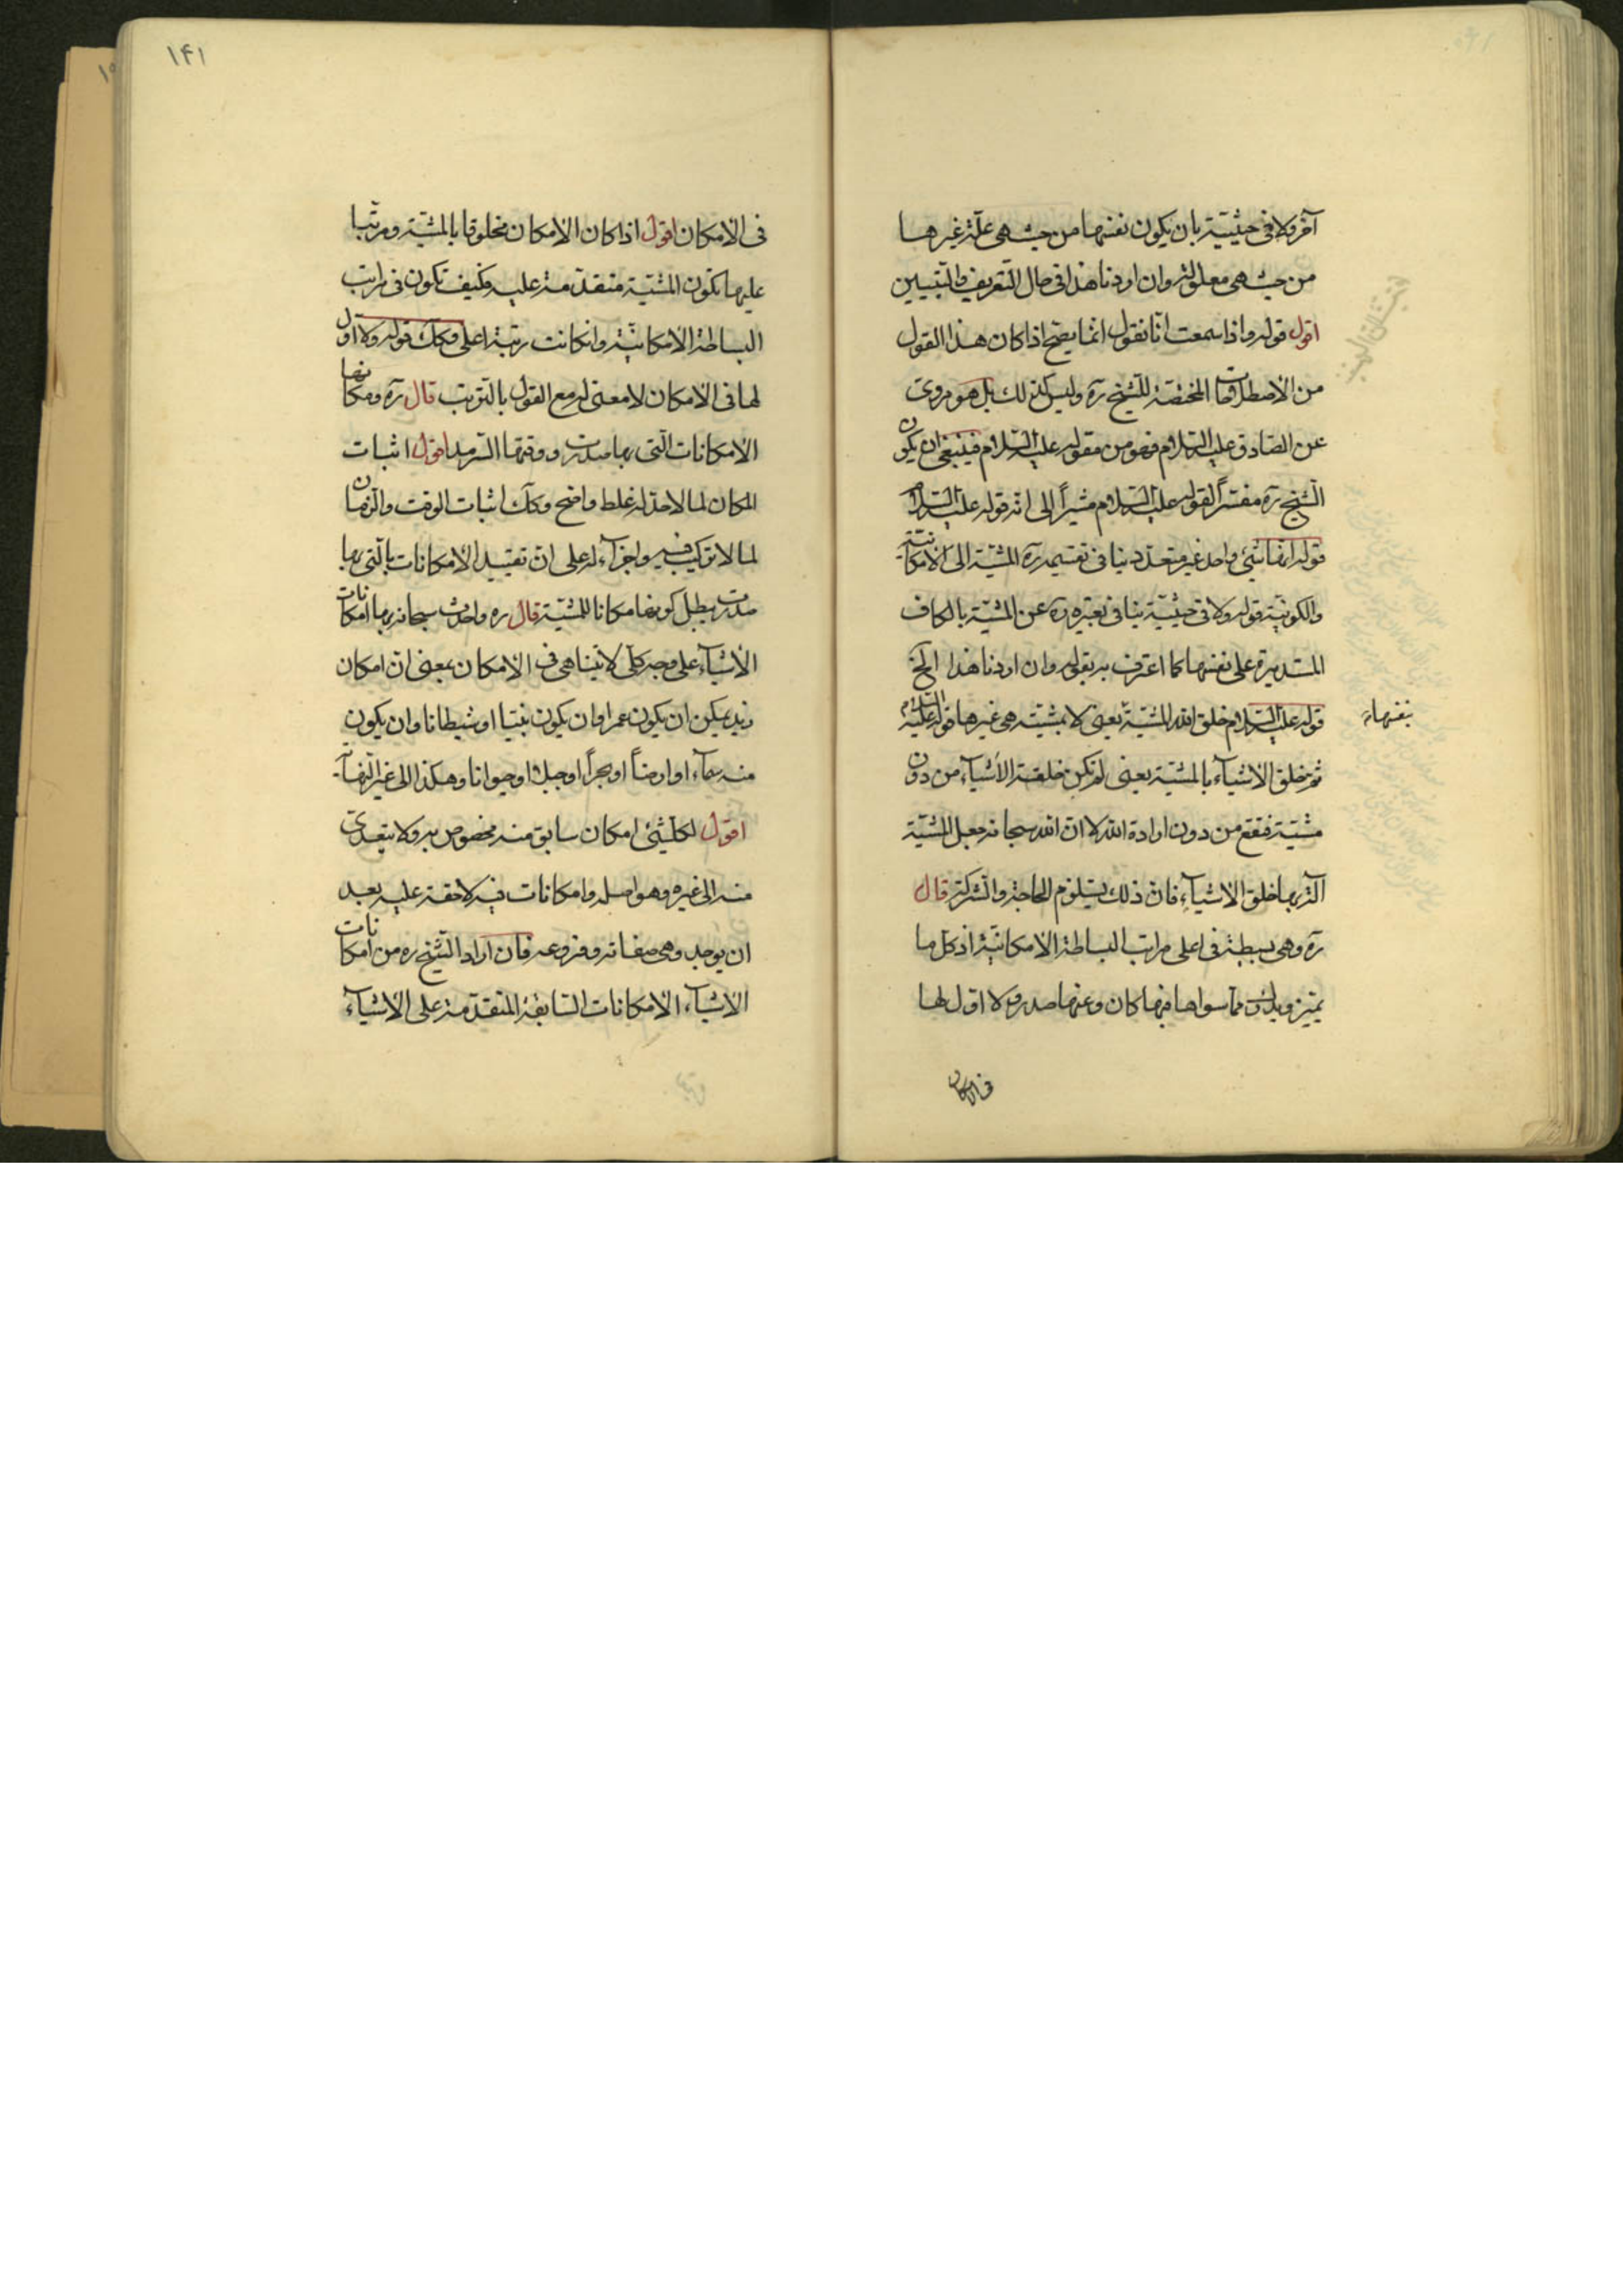 آخر ولا فى حيثيّة بان يكون نفسها من حيث هى علّة غيرها
من حيث هى معلولة وان اردنا هذا فى حال التّعريف والتّبيين
اقول قوله واذا سمعت انّا نقول انّما يصحّ اذا كان هذا القول
من الاصطلاحات المختصّة للشّيخ ره وليس كذلك بل هو مروى
عن الصّادق عليه السّلام فهو من مقوله عليه السّلام فينبغى ان يكون
الشّيخ ره مفسّراً لقوله عليه السّلام مشيراً الى انّه قوله عليه السّلام
قوله انّها شىء واحد غير متعدّد ينافى تقسيمه ره المشيّة الى الامكانيّة
والكونيّة قوله ولا فى حيثيّة ينافى تعبيره ره عن المشيّة بالكاف
المستديرة على نفسها كما اعترف به بقوله وان اردنا هذا الخ
قوله عليه السّلام خلق الله المشيّة يعنى لا بمشيّة هى غيرها قوله عليه السّلام
بنفسها
ثم خلق الاشيآء بالمشيّة يعنى لم تكن خلقة الاشيآء من دون
مشيّة فتقع من دون ارادة الله لا انّ الله سبحانه جعل المشيّة
آلة بها خلق الاشيآء فانّ ذلك يستلزم الحاجة والشركة قال
ره وهى بسيطة فى اعلى مراتب البساطة الامكانيّة اذ كل ما
يتميز ويدرك ممّا سواها فمنها كان وعنها صدر ولا اوّل لها
فى الامكان
١۴١
فى الامكان اقول اذا كان الامكان مخلوقا بالمشيّة ومرتّبا
عليها تكون المشيّة متقدّمة عليه وكيف تكون فى مراتب
البساطة الامكانيّة وانكانت رتبة اعلى وكك قوله ولا اوّل
لها فى الامكان لا معنى له مع القول بالترتيب قال ره ومكانها
الامكانات الّتى بها صدرت ووقتها السّرمد اقول اثبات
المكان لما لا حدّ له غلط واضح وكك اثبات الوقت والزمان
لما لا تركيب فيه ولا جزآء له على انّ تقييد الامكانات بالّتى بها
صدرت يبطل كونها مكانا للمشيّة قال ره واحدث سبحانه بها امكانات
الاشيآء على وجه كلّى لا يتناهى فى الامكان بمعنى انّ امكان
زيد يمكن ان يكون عمرا وان يكون نبيّا او شيطانا وان يكون
منه سمآء او ارضاً او بحراً او جبلا او حيوانا وهكذا الى غير النّهاية
اقول لكلّشىء امكان سابق منه مخصوص به ولا يتعدّى
منه الى غيره وهو اصله وامكانات فيه لاحقة عليه بعد
ان يوجد وهى صفاته وفروعه فان اراد الشّيخ ره من امكانات
الاشيآء الامكانات السّابقة المتقدّمة على الاشيآء